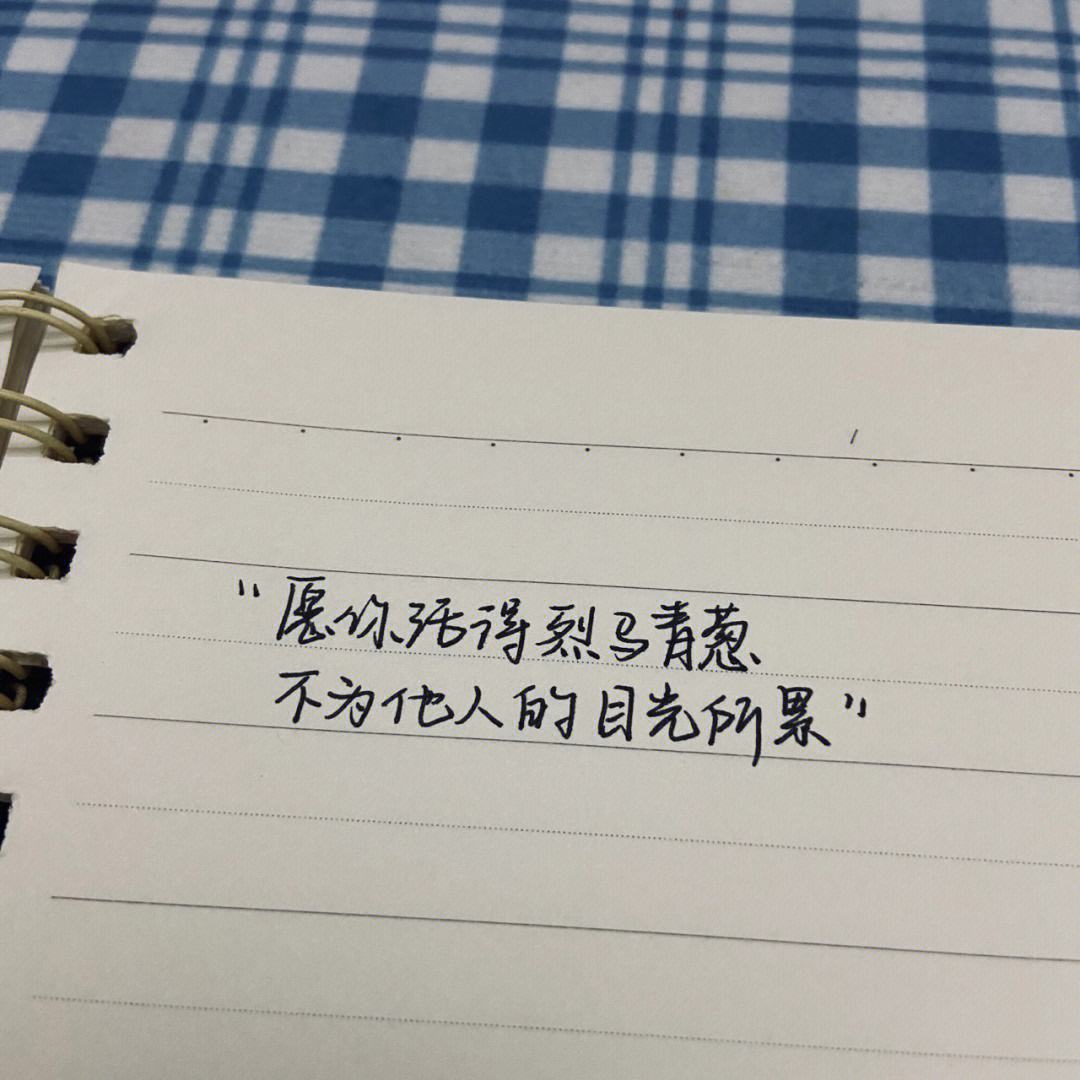 “愿你活得烈马青葱
不为他人的目光所累”